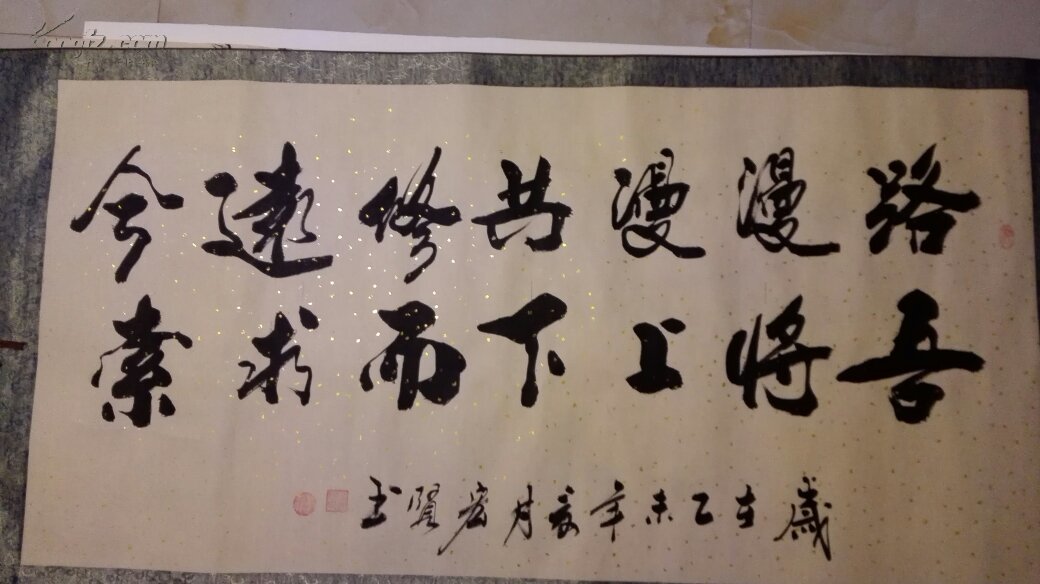 路漫漫其修遠兮
吾将上下而求索
歲在乙未年夏月宏賢书